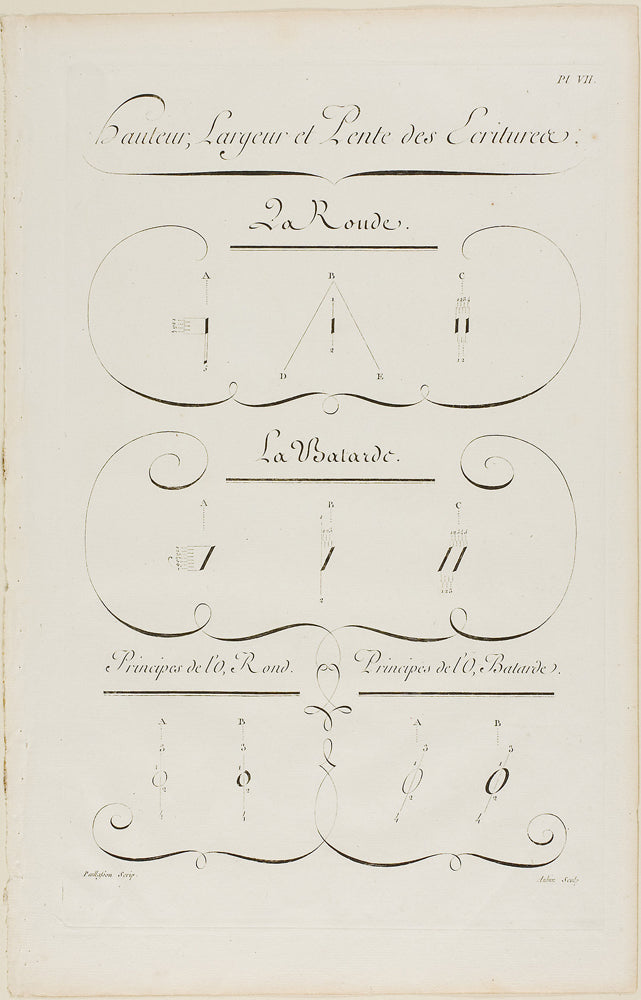 Pl VII.
Hauteur, Largeur et Pente des Ecritures.
La Ronde.
A B C
D E
La Batarde.
A B C
Principes de l'O, Rond. Principes de l'O, Batarde.
A B A B
3 3 3 3
1 1 1 1
2 2 2 2
4 4 4 4
Paillasson Scrip. Aubin Sculp